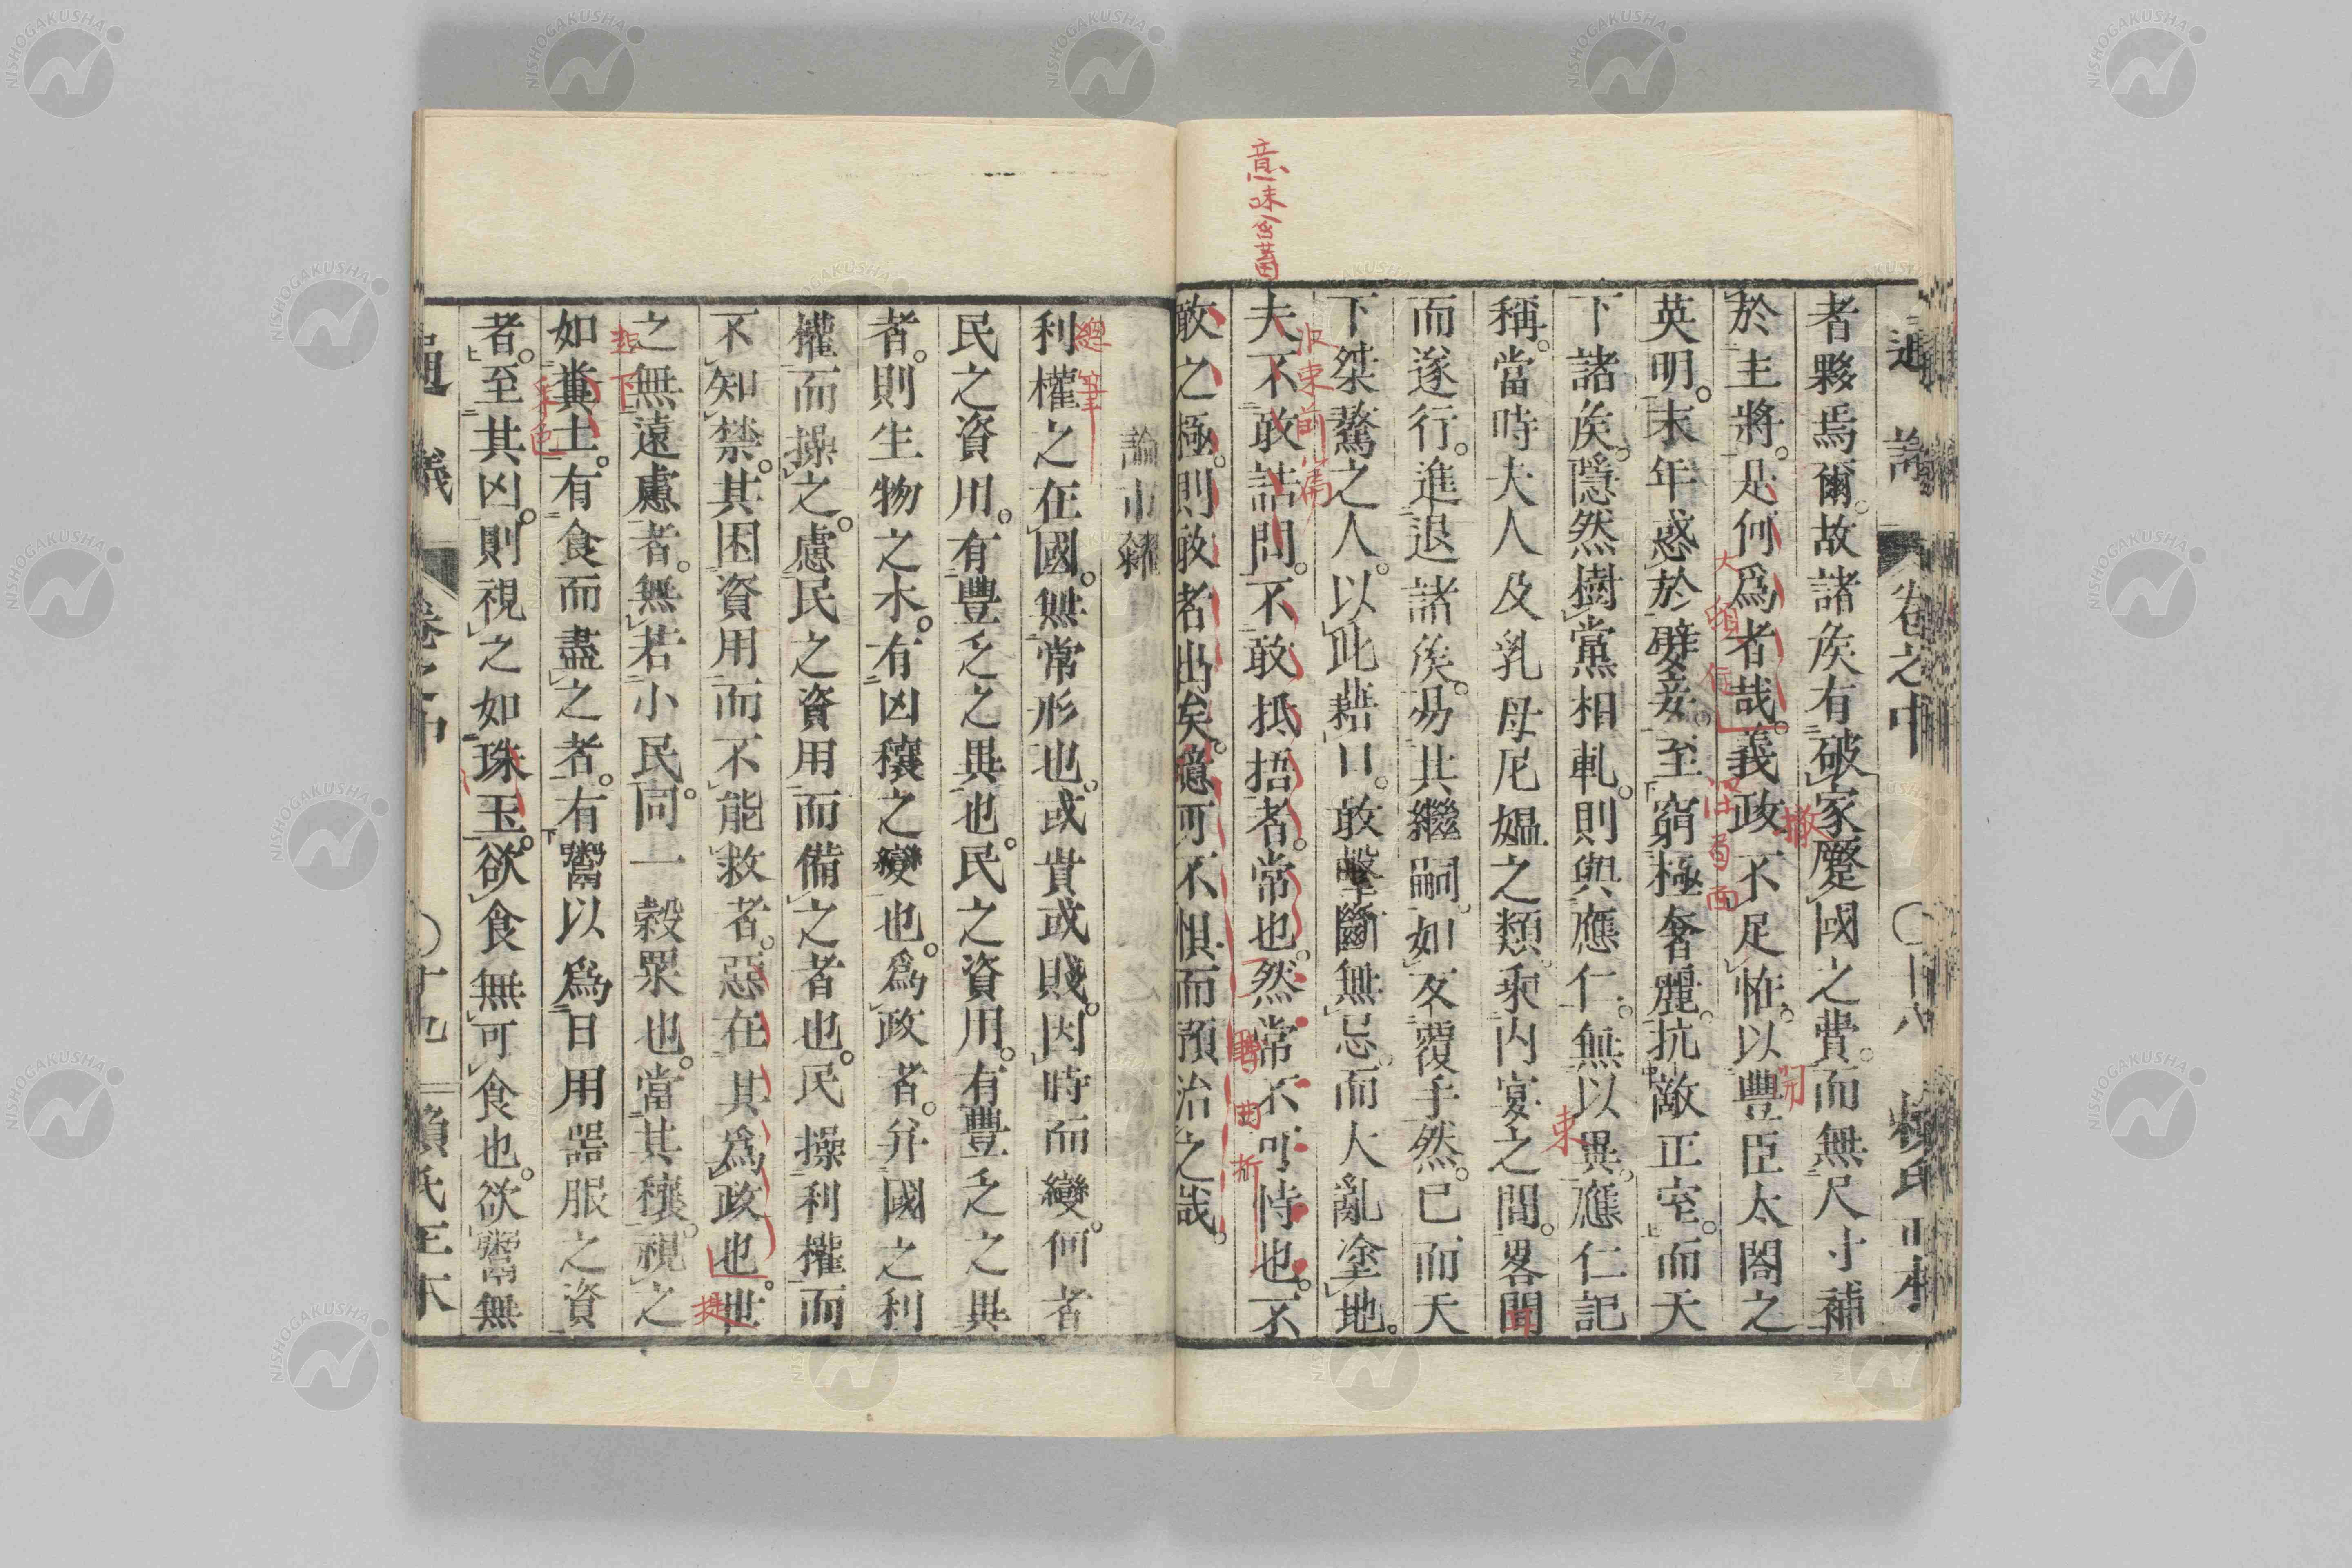 意味含蓄
通議 卷之中 〇十八 頼氏正本
者夥焉爾。故諸矦有破家蹷國之費。而無尺寸補
於主將。是何爲者哉。義政不足怪。以豐臣太閤之
英明。末年惑於嬖妾。至窮極奢麗。抗敵正室。而天
下諸矦。隱然樹黨相軋。則與應仁。無以異。應仁記
稱。當時夫人及乳母尼媼之類。乘内宴之間。畧聞
而遂行。進退諸矦。易其繼嗣。如反覆手然。已而天
下桀驁之人。以此藉口。敢擊斷無忌。而大亂塗地。
夫不敢詰問。不敢抵捂者。常也。然常不可恃也。不
敢之極。則敢者出矣。噫可不惧而預治之哉。
大頓
撇
開
束
收束前篇
曲折
論市糴
利權之在國。無常形也。或貴或賤。因時而變。何者
民之資用。有豐乏之異也。民之資用。有豐乏之異
者。則生物之木。有凶穰之變也。爲政者。弁國之利
權而操之。慮民之資用而備之者也。民操利權而
不知禁。其困資用而不能救者。惡在其爲政也。世
之無遠慮者。無若小民。同一穀眾也。當其穰。視之
如糞土。有食而盡之者。有鬻以爲日用器服之資
者。至其凶。則視之如珠玉。欲食無可食也。欲鬻無
總筆
提
起下
采色
通議 卷之中 〇十九 頼氏正本
NISHOGAKUSHA